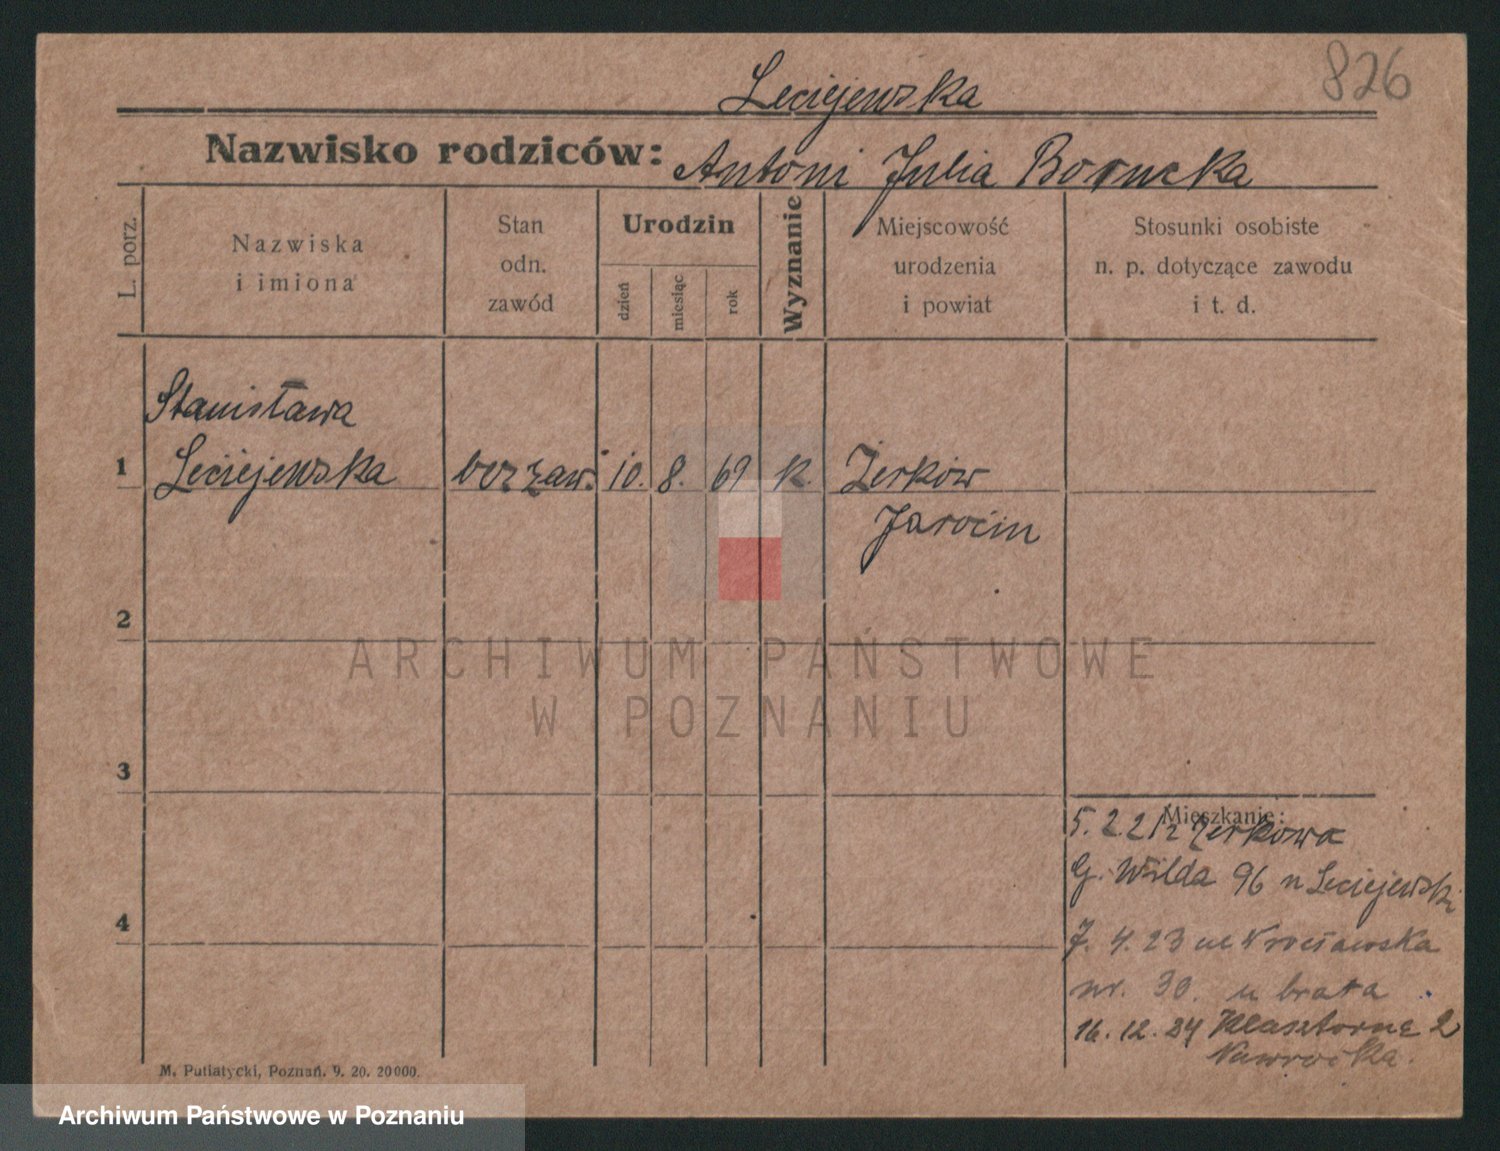 826
Leciejewska
Nazwisko rodziców: Antoni Julia Borucka
L. porz.
Nazwiska
i imiona
Stan
odn.
zawód
Urodzin
dzień
miesiąc
rok
Wyznanie
Miejscowość
urodzenia
i powiat
Stosunki osobiste
n. p. dotyczące zawodu
i t. d.
Stanisława
1 Leciejewska bez zaw. 10. 8. 69 k. Żerków
Jarocin
2
ARCHIWUM PAŃSTWOWE
W POZNANIU
3
Mieszkanie:
5. 2. 21 z Żerkowa
G. Wilda 96 u Leciejewski
4
7. 4. 23 ul Wrocławska
nr. 30. u brata
16. 12. 24 Klasztorne 2
Nawrocka.
M. Putiatycki, Poznań. 9. 20. 20000.
Archiwum Państwowe w Poznaniu